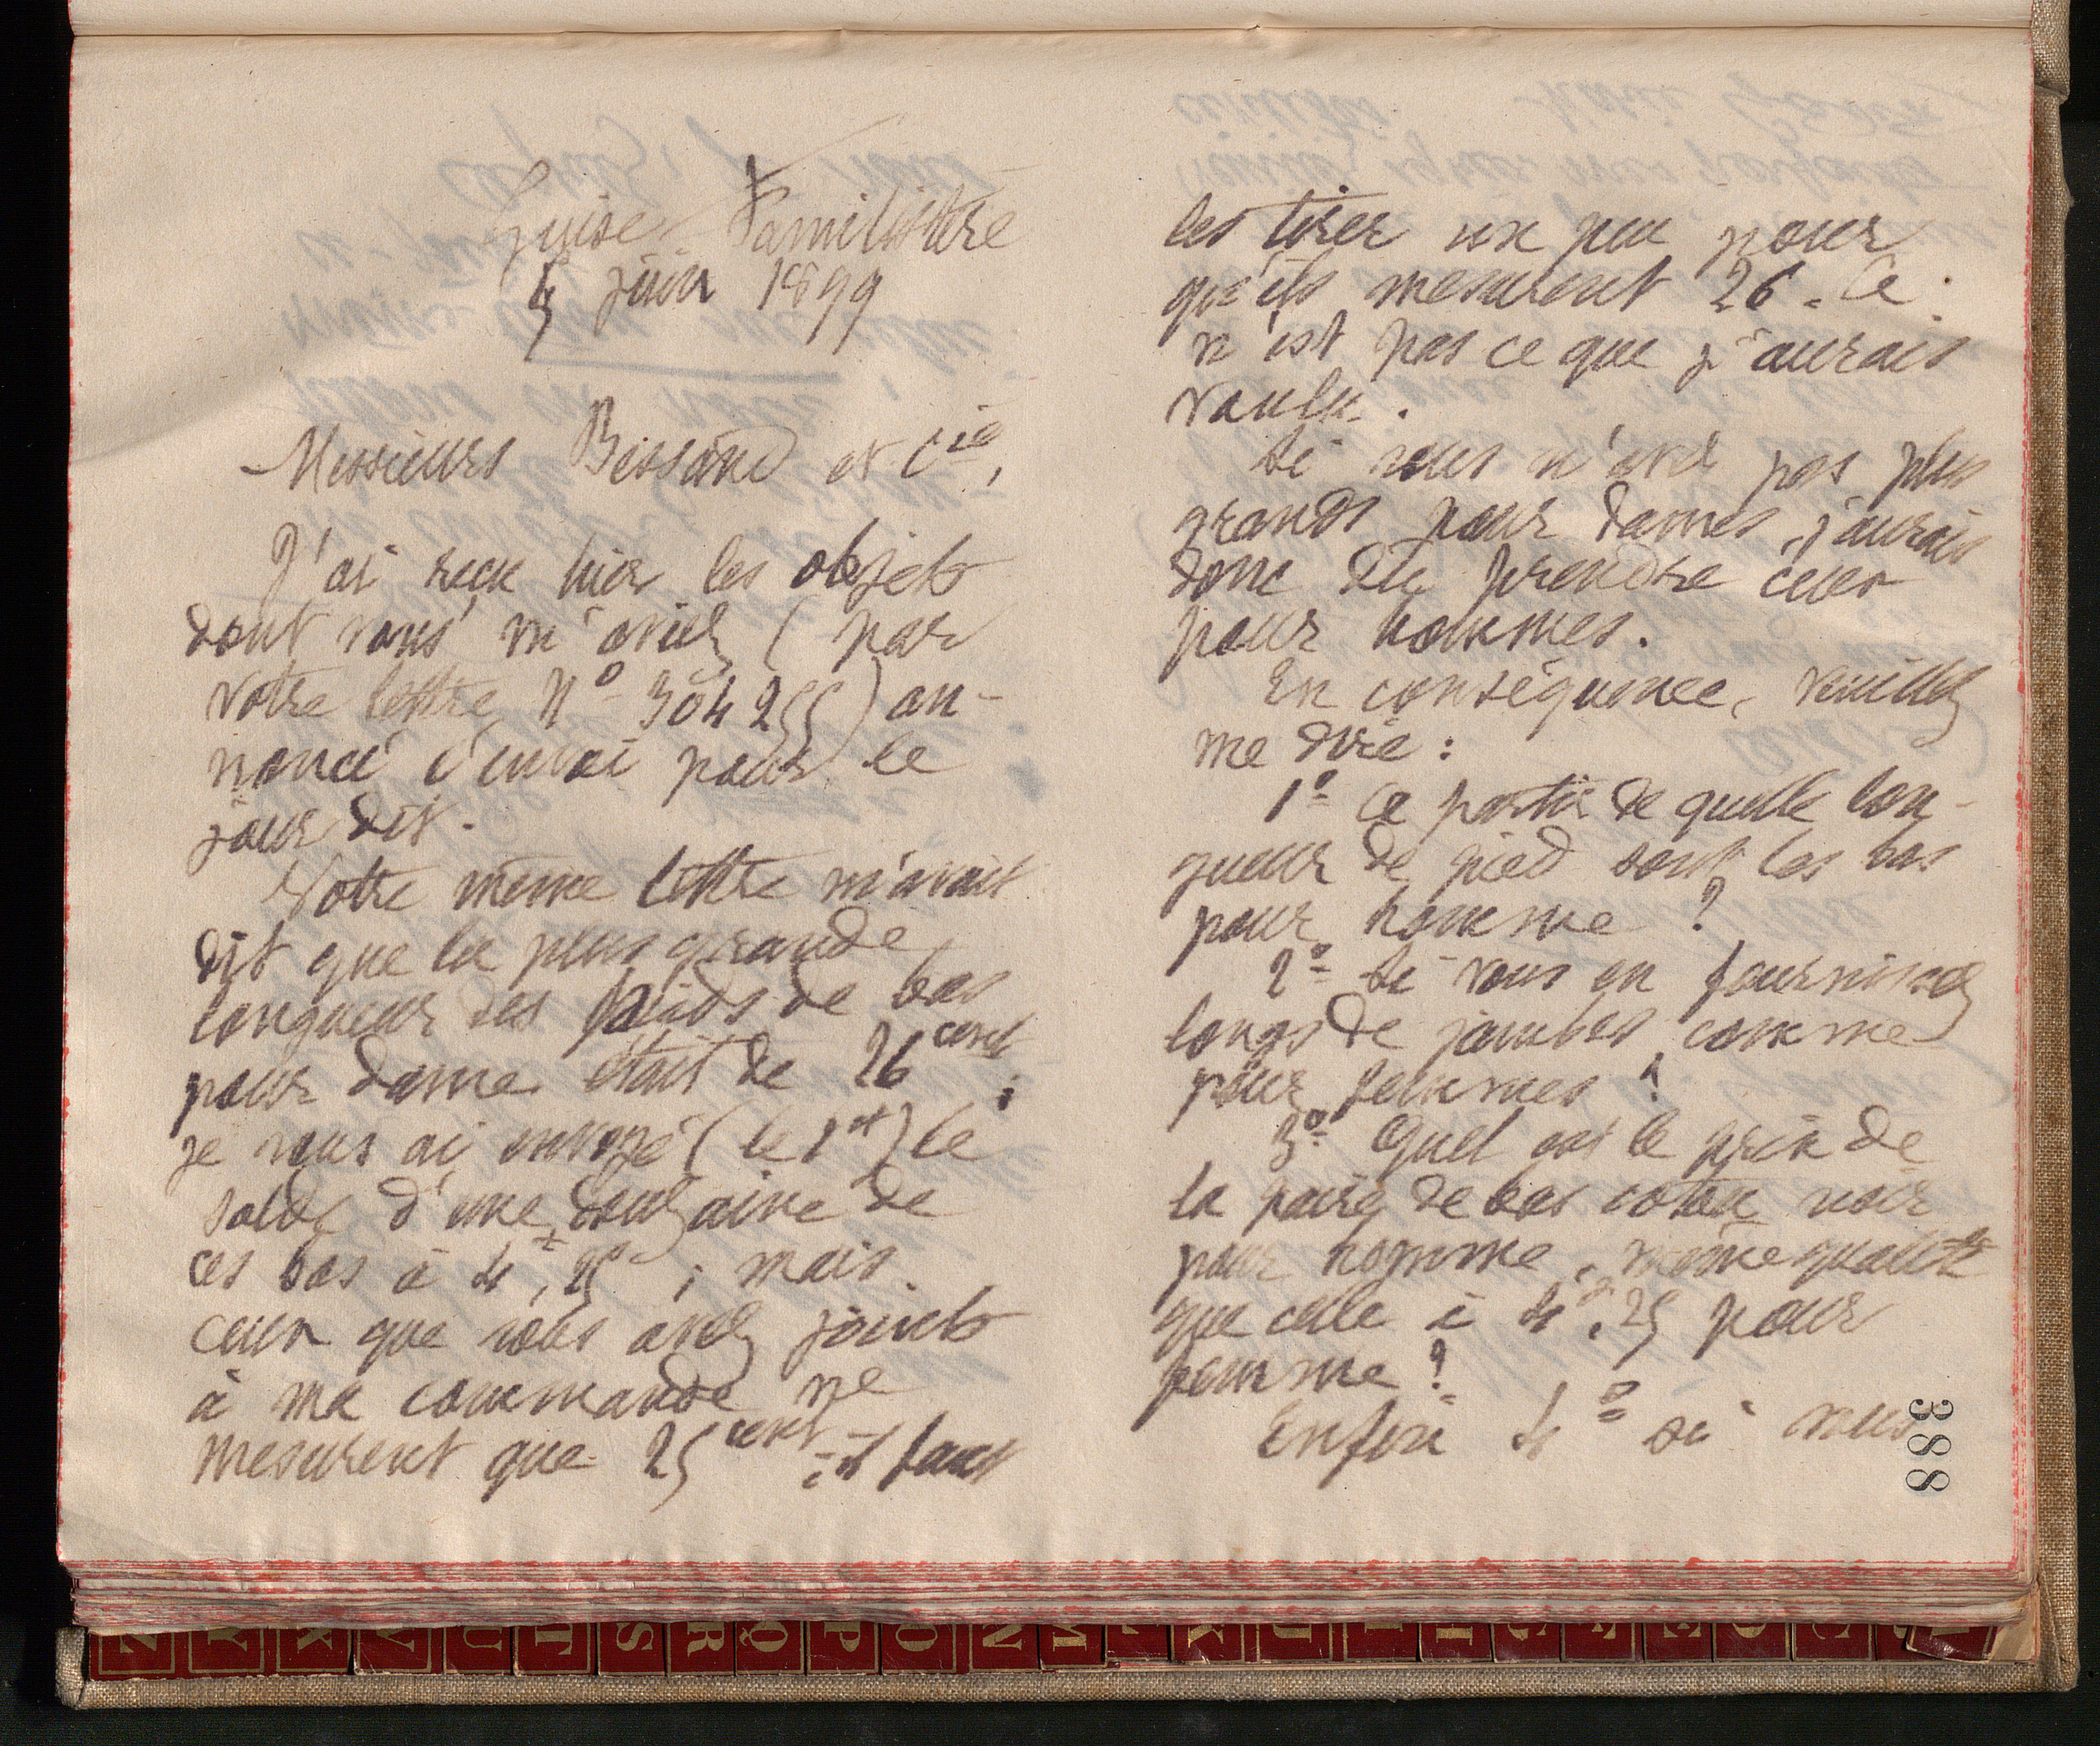 Guise Familistère
5 juin 1899
Messieurs Bessand et Cie,
J'ai reçu hier les objets
dont vous m'aviez (par
votre lettre No 304255) an-
noncé l'envoi pour le
jour dit.
Votre même lettre m'avait
dit que la plus grande
longueur des pieds de bas
pour dame était de 26 cent ;
je vous ai envoyé (le 1er) le
solde d'une douzaine de
ces bas à 4f,25c ; mais
ceux que vous avez joints
à ma commande ne
mesurent que 25 cent ; il faut
les tirer un peu pour
qu'ils mesurent 26. Ce
n'est pas ce que j'aurais
voulu.
Si vous n'avez pas plus
grands pour dames, j'aurais
donc dû prendre ceux
pour hommes.
En conséquence, veuillez
me dire :
1o à partir de quelle lon-
gueur de pied sont les bas
pour homme ?
2o Si vous en fournissez
longs de jambes comme
pour femmes ?
3o Quel est le prix de
la paire de bas coton noir
pour homme, même qualité
que celle à 4f,25 pour
femme ?
Enfin 4o si vous
388
Z
Y
X
V
U
T
S
R
Q
P
O
N
M
L
K
J
I
H
G
F
E
D
C
B
A